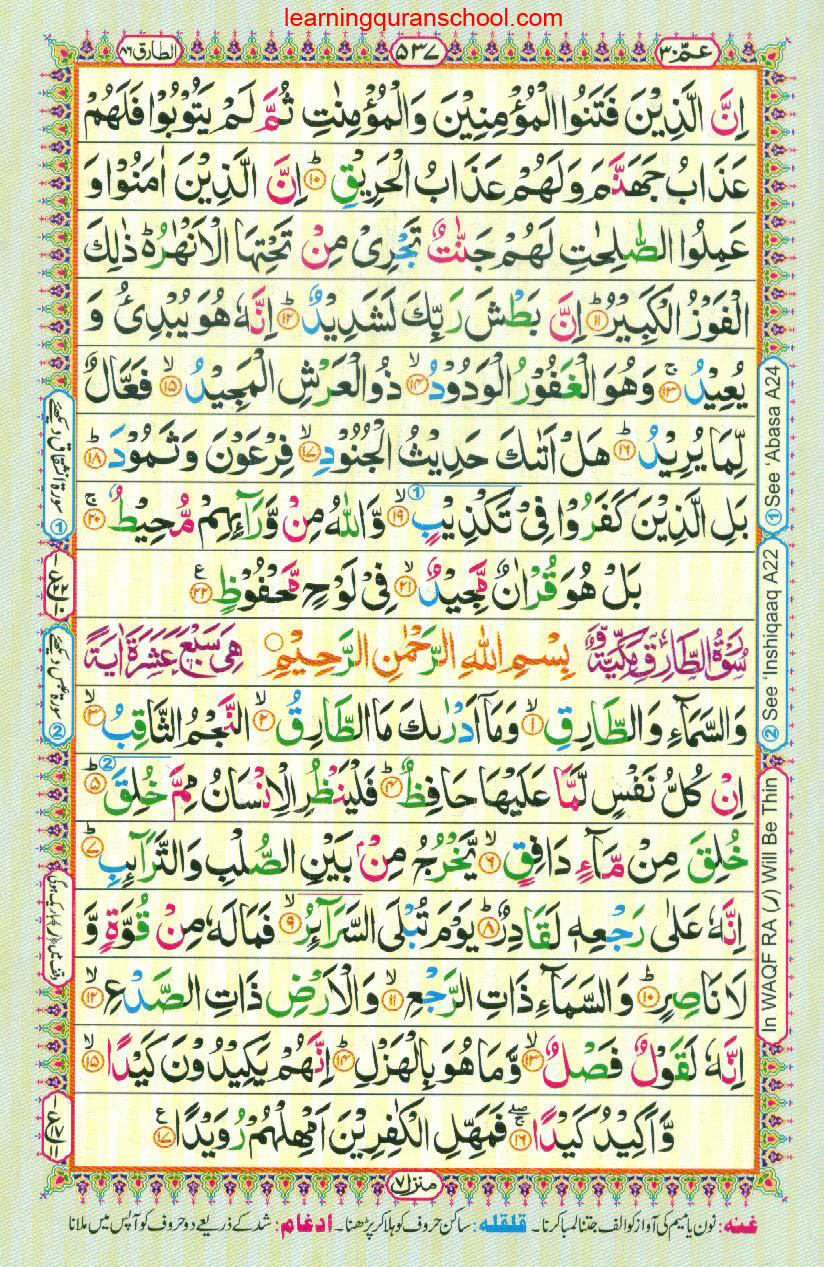 learningquranschool.com
الطارق ٨٦
٥٣٧
عمّ ٣٠
اِنَّ الَّذِيْنَ فَتَنُوا الْمُؤْمِنِيْنَ وَالْمُؤْمِنٰتِ ثُمَّ لَمْ يَتُوْبُوْا فَلَهُمْ
عَذَابُ جَهَنَّمَ وَلَهُمْ عَذَابُ الْحَرِيْقِ ؕ۱۰ اِنَّ الَّذِيْنَ اٰمَنُوْا وَ
عَمِلُوا الصّٰلِحٰتِ لَهُمْ جَنّٰتٌ تَجْرِىْ مِنْ تَحْتِهَا الْاَنْهٰرُ ؕ ذٰلِكَ
الْفَوْزُ الْكَبِيْرُ ؕ۱۱ اِنَّ بَطْشَ رَبِّكَ لَشَدِيْدٌ ؕ۱۲ اِنَّهٗ هُوَ يُبْدِئُ وَ
يُعِيْدُ ۚ۱۳ وَهُوَ الْغَفُوْرُ الْوَدُوْدُ ۙ۱۴ ذُو الْعَرْشِ الْمَجِيْدُ ۙ۱۵ فَعَّالٌ
لِّمَا يُرِيْدُ ؕ۱۶ هَلْ اَتٰىكَ حَدِيْثُ الْجُنُوْدِ ۙ۱۷ فِرْعَوْنَ وَثَمُوْدَ ؕ۱۸
بَلِ الَّذِيْنَ كَفَرُوْا فِىْ تَكْذِيْبٍ ①ۙ۱۹ وَّاللّٰهُ مِنْ وَّرَآئِهِمْ مُّحِيْطٌ ۚ۲۰
بَلْ هُوَ قُرْاٰنٌ مَّجِيْدٌ ۙ۲۱ فِىْ لَوْحٍ مَّحْفُوْظٍ ۲۲ ع
سُوْرَةُ الطَّارِقِ مَكِّيَّةٌ وَّ بِسْمِ اللّٰهِ الرَّحْمٰنِ الرَّحِيْمِ هِىَ سَبْعَ عَشَرَةَ اٰيَةً
وَالسَّمَآءِ وَالطَّارِقِ ۙ۱ وَمَاۤ اَدْرٰىكَ مَا الطَّارِقُ ۙ۲ النَّجْمُ الثَّاقِبُ ۙ۳
اِنْ كُلُّ نَفْسٍ لَّمَّا عَلَيْهَا حَافِظٌ ؕ۴ فَلْيَنْظُرِ الْاِنْسَانُ مِمَّ خُلِقَ ②ؕ۵
خُلِقَ مِنْ مَّآءٍ دَافِقٍ ۙ۶ يَّخْرُجُ مِنْۢ بَيْنِ الصُّلْبِ وَالتَّرَآئِبِ ؕ۷
اِنَّهٗ عَلٰى رَجْعِهٖ لَقَادِرٌ ؕ۸ يَوْمَ تُبْلَى السَّرَآئِرُ ۙ۹ فَمَا لَهٗ مِنْ قُوَّةٍ وَّ
لَا نَاصِرٍ ؕ۱۰ وَالسَّمَآءِ ذَاتِ الرَّجْعِ ۙ۱۱ وَالْاَرْضِ ذَاتِ الصَّدْعِ ۙ۱۲
اِنَّهٗ لَقَوْلٌ فَصْلٌ ۙ۱۳ وَّمَا هُوَ بِالْهَزْلِ ؕ۱۴ اِنَّهُمْ يَكِيْدُوْنَ كَيْدًا ۙ۱۵
وَّاَكِيْدُ كَيْدًا ۚۖ۱۶ فَمَهِّلِ الْكٰفِرِيْنَ اَمْهِلْهُمْ رُوَيْدًا ۱۷ ع
① See ‘Abasa A24
② See ‘Inshiqaaq A22
In WAQF RA (ر) Will Be Thin
① سورۃ انشقاق دیکھئے
② سورۃ عبس دیکھئے
وقف میں (ر) باریک ہوگی
منزل ۷
غنہ: نون یا میم کی آواز کو الف جتنا لمبا کرنا۔ قلقلہ: ساکن حروف کو ہلا کر پڑھنا۔ ادغام: شد کے ذریعے دو حروف کو آپس میں ملانا